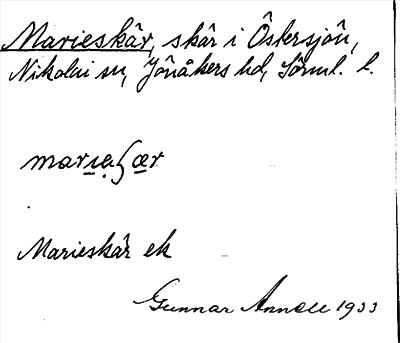 Marieskär, skär i Östersjön,
Nikolai sn, Jönåkers hd, Sörml. l.
marɩeʃær
Marieskär ek
Gunnar Annell 1933